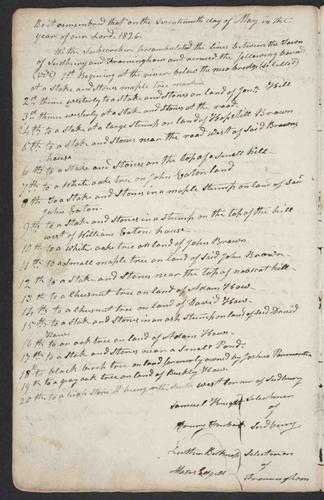 Be it remembered that on the Seventeenth day of May in the
year of our Lord 1826.
We the Subscribers perambulated the lines between the Town
of Sudbury and Framingham and renewed the following bounds
(viz) 1st Beginning at the river below the new bridge (so called)
at a Stake and Stones maple tree marked
2nd thence westerly to a Stake and Stones on land of Hill
3rd thence westerly at a Stake and Stones at the road
4th to a Stake at a large Stump on land of Hopestill Brown
5th to a Stake and Stones near the road west of Said Browns
house
6th to a Stake and Stones on the top of a Small hill
7th to a White oak tree on John Eaton land
8th To a Stake and Stones in a maple Stump on land of Said
John Eaton
9th to a Stake and Stones in a Stump on the top of
west of William Eatons house
10th to a White oak tree on land of John Brown
11th to a Small maple tree on land of Said John Brown
12th to a Stake and Stones near the top of nobscot hill
13th to a Chesnut tree on land of Adam Howe
14th to a Chesnut tree on land of David Howe
15th to a Stake and Stones in an ash Stump on land of Said David
Howe
16th to an oak tree on land of Adam Howe
17th to a Stake and Stones near a Small Pond
18th to black birch tree on land formerly owned by Joshua Parmenter
19th to a gray oak tree on land of Howe
20th to a Stone it being at the South west corner of Sudbury
Samuel Selectmen
of
Sudbury
Luther Belknap Selectmen
of
Framingham